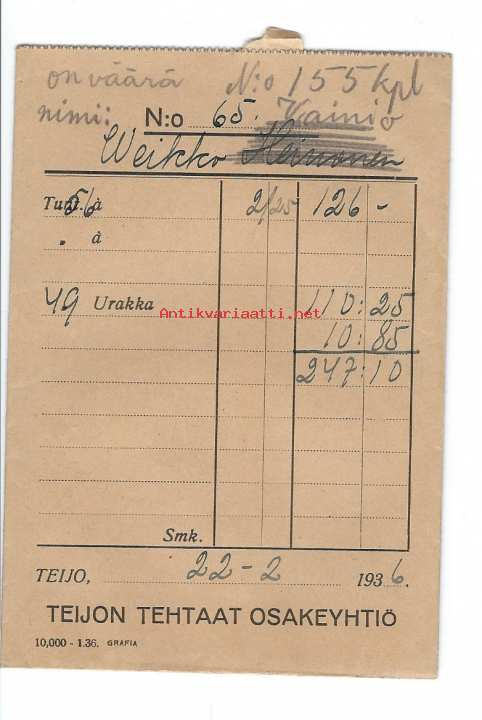 on väärä N:o 155 kpl
nimi: N:o 65. Kainio
Weikko Heinonen
Tunt. 56 à 2/25 126 -
" à
49 Urakka 110:25
Antikvariaatti.net
10:85
247:10
Smk.
TEIJO, 22-2 1936.
TEIJON TEHTAAT OSAKEYHTIÖ
10,000 - 1.36. GRAFIA